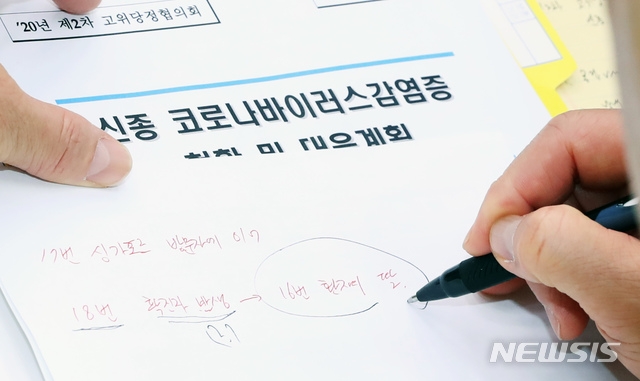 '20년 제2차 고위당정협의회
신종 코로나바이러스감염증
현황 및 대응계획
17번 싱가포르 방문자
18번 확진자 발생 → 16번 환자의 딸.
NEWSIS